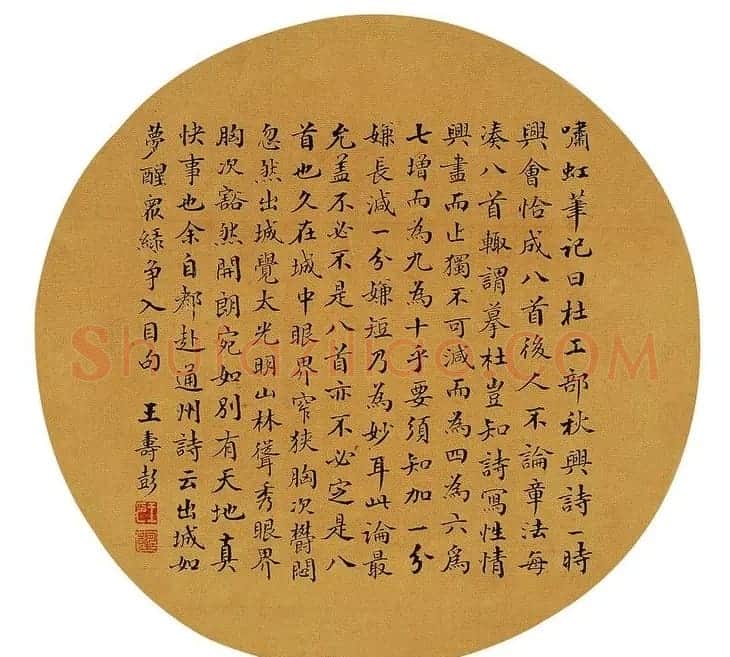 嘯虹筆記曰杜工部秋興詩一時
興會恰成八首後人不論章法每
湊八首輙謂摹杜豈知詩寫性情
興盡而止獨不可減而為四為六爲
七增而為九為十乎要須知加一分
嫌長減一分嫌短乃為妙耳此論最
允盖不必不是八首亦不必定是八
首也久在城中眼界窄狹胸次欝悶
忽然出城覺太光明山林聳秀眼界
胸次豁然開朗宛如別有天地真
快事也余自都赴通州詩云出城如
夢醒眾緑争入目句 王壽彭
Shufaziliao.COM